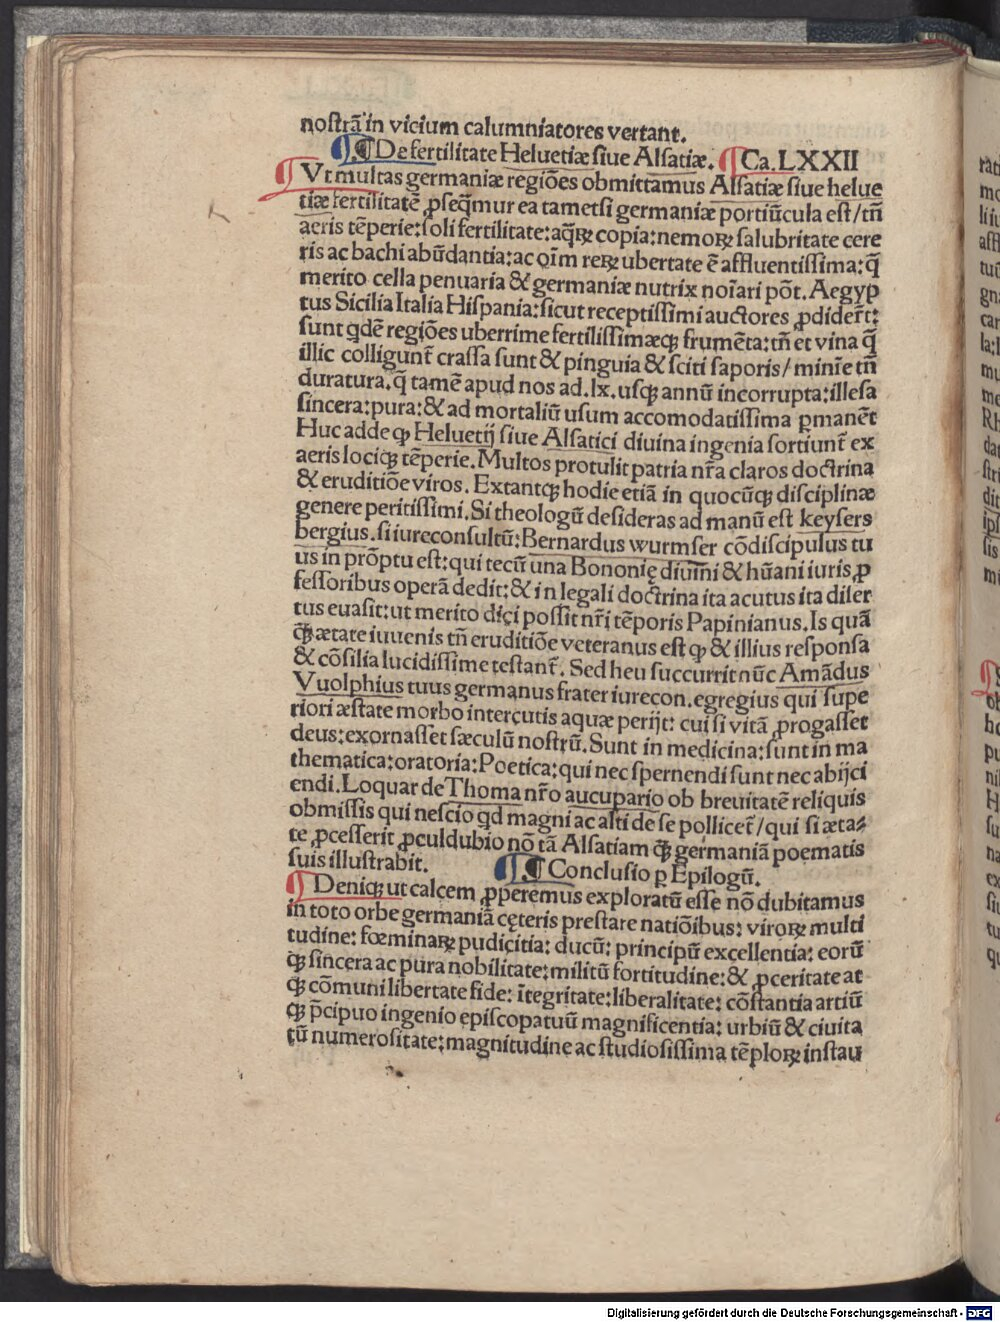 nostrã in vicium calumniatores vertant.
¶ De fertilitate Heluetiæ siue Alsatiæ. ¶ Ca. LXXII
¶ Vt multas germaniæ regiões obmittamus Alsatiæ siue helue
tiæ fertilitatẽ ꝓseq̃mur ea tametsi germaniæ portiũcula est/tñ
aeris tẽperie: soli fertilitate: aq̃ꝝ copia: nemoꝝ salubritate cere
ris ac bachi abũdantia: ac oĩm reꝝ ubertate ẽ affluentissima: q̃
merito cella penuaria & germaniæ nutrix noĩari põt. Aegyp
tus Sicilia Italia Hispania: sicut receptissimi auctores ꝓdider̃t:
sunt qdẽ regiões uberrime fertilissimæqꝫ frumẽta: tñ et vina q̃
illic colligunt̃ crassa sunt & pinguia & sciti saporis/ minĩe tñ
duratura. q̃ tamẽ apud nos ad. lx. usqꝫ annũ incorrupta: illesa
sincera: pura: & ad mortaliũ usum accomodatissima ꝑmanẽt
Huc adde ꝙ Heluetij siue Alsatici diuina ingenia sortiunt̃ ex
aeris lociqꝫ tẽperie. Multos protulit patria nr̃a claros doctrina
& eruditiõe viros. Extantqꝫ hodie etiã in quocũqꝫ disciplinæ
genere peritissimi. Si theologũ desideras ad manũ est keysers
bergius. si iureconsultũ: Bernardus wurmser cõdiscipulus tu
us in prõptu est: qui tecũ una Bononię diuini & hũani iuris ꝓ
fessoribus operã dedit: & in legali doctrina ita acutus ita diser
tus euasit: ut merito dici possit nr̃i tẽporis Papinianus. Is quã
q̃ꝫ ætate iuuenis tñ eruditiõe veteranus est ꝙ & illius responsa
& cõsilia lucidissime testant̃. Sed heu succurrit nũc Amãdus
Vuolphius tuus germanus frater iurecon. egregius qui supe
riori æstate morbo intercutis aquæ perijt: cui si vitã ꝓrogasset
deus: exornasset sæculũ nostrũ. Sunt in medicina: sunt in ma
thematica: oratoria: Poetica: qui nec spernendi sunt nec abijci
endi. Loquar de Thoma nr̃o aucupario ob breuitatẽ reliquis
obmissis qui nescio qd magni ac alti de se pollicet̃/ qui si æta⸗
te ꝓcesserit ꝓculdubio nõ tã Alsatiam q̃ꝫ germaniã poematis
suis illustrabit. ¶ Conclusio ꝑ Epilogũ.
¶ Deniqꝫ ut calcem ꝓperemus exploratũ esse nõ dubitamus
in toto orbe germaniã cęteris prestare natiõibus: viroꝝ multi
tudine: fœminaꝝ pudicitia: ducũ: principũ excellentia: eorũ
qꝫ sincera ac pura nobilitate: militũ fortitudine: & ꝓceritate at
qꝫ cõmuni libertate fide: ĩtegritate: liberalitate: cõstantia artiũ
qꝫ p̃cipuo ingenio episcopatuũ magnificentia: urbiũ & ciuita
tũ numerositate: magnitudine ac studiosissima tẽploꝝ instau
Digitalisierung gefördert durch die Deutsche Forschungsgemeinschaft - DFG